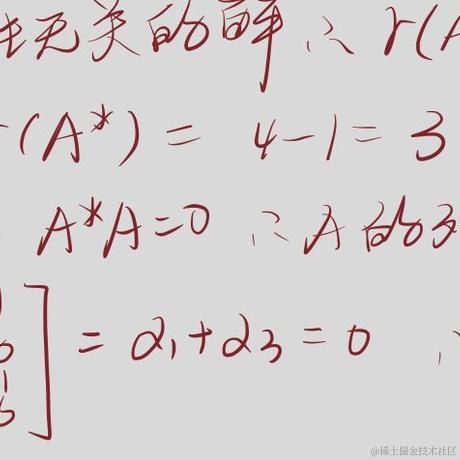 性无关的解 ∴ r(A
r(A*) = 4-1 = 3
A*A=0 ∴A的列
] = α₁+α₃ = 0 ∴
@稀土掘金技术社区